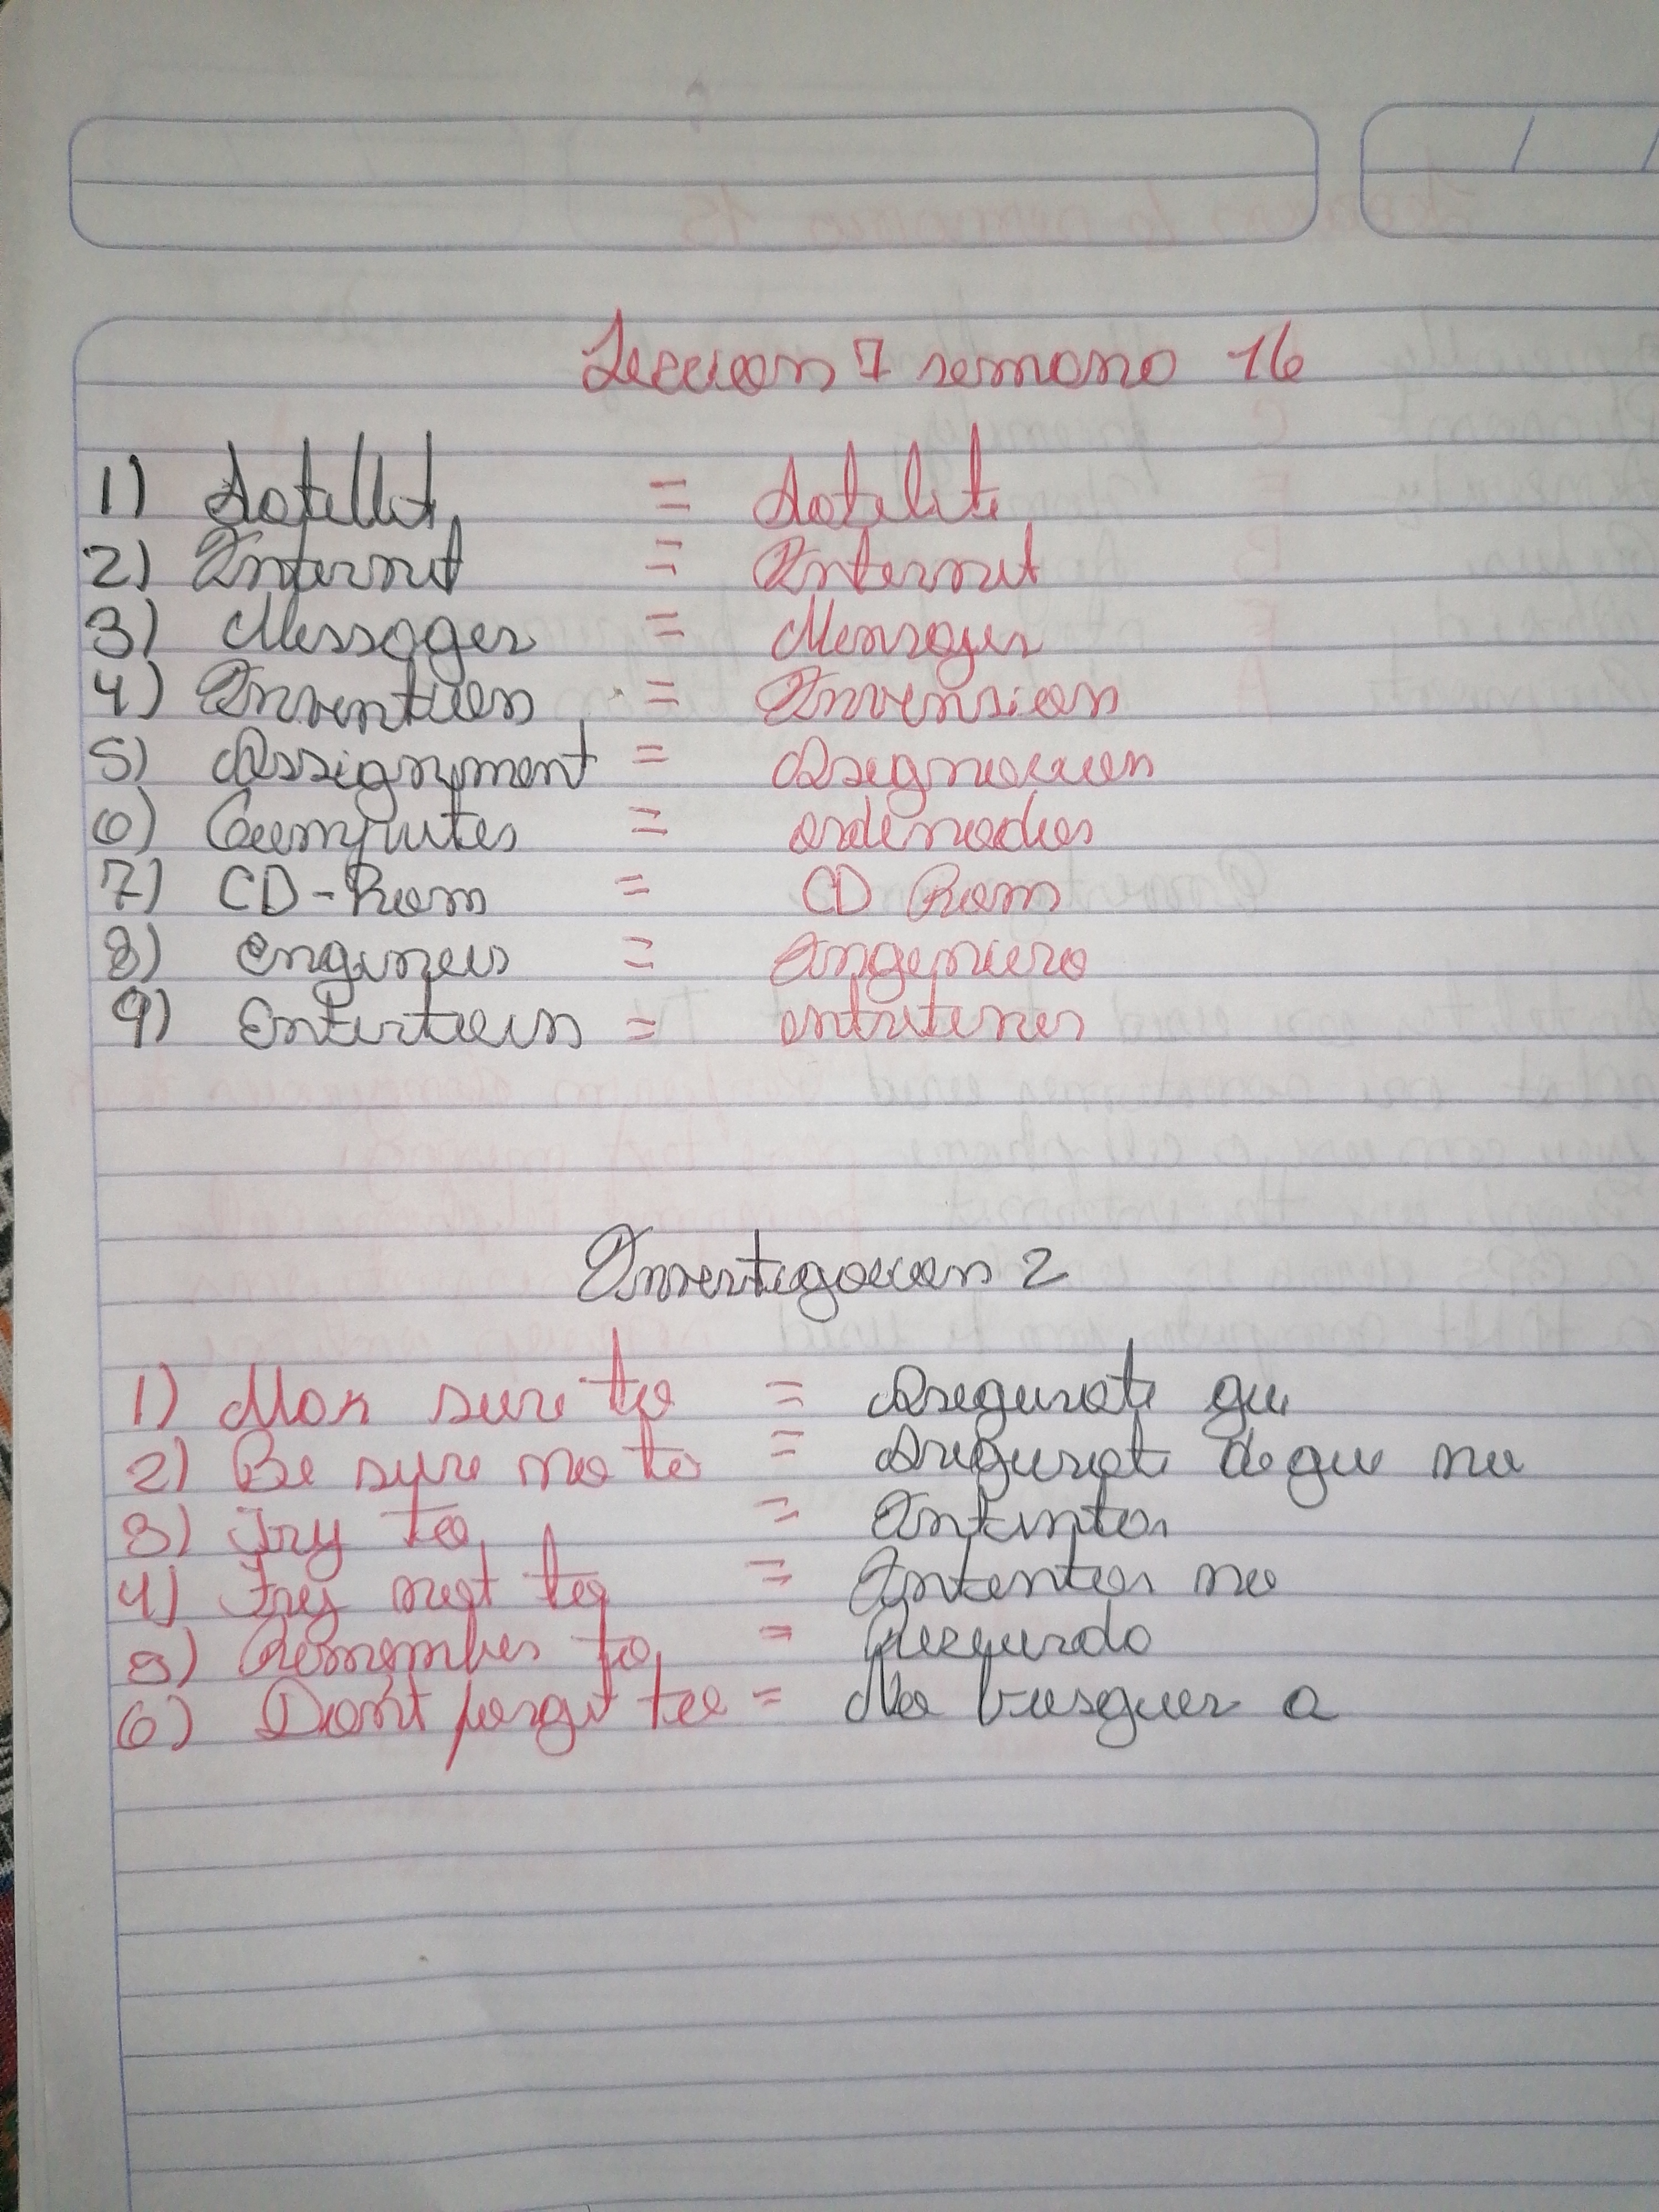 Leccion 7 semana 16
1) Satellite = Satelite
2) Internet = Internet
3) Messages = Mensajes
4) Invention = Invension
5) Assignment = Asignacion
6) Computes = ordenador
7) CD-Rom = CD Rom
8) engineer = Ingeniero
9) Entertain = entretener
Investigacion 2
1) Mak sure to = Asegurate que
2) Be sure no to = Asegurate de que no
3) Try to = Intentar
4) Try not to = Intentar no
5) Remember to = Recuerda
6) Don't forget to = No busques a